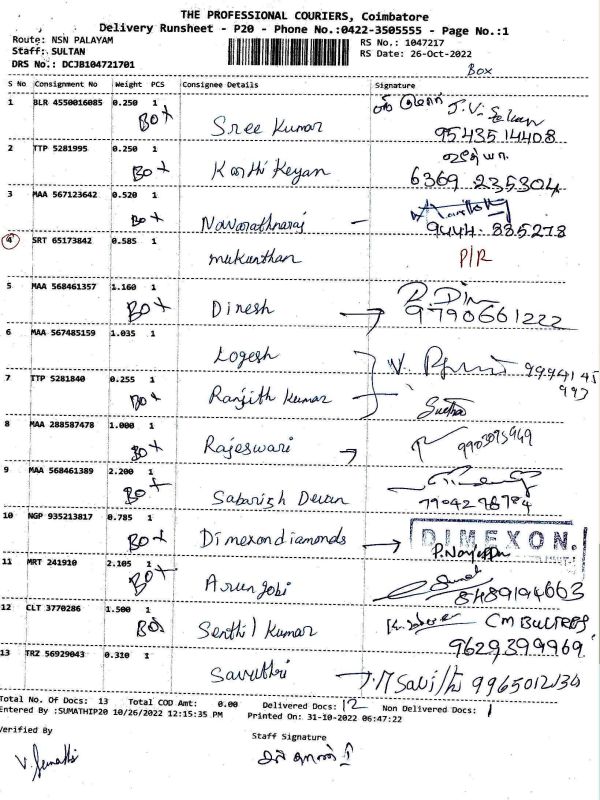 THE PROFESSIONAL COURIERS, Coimbatore
Delivery Runsheet - P20 - Phone No.:0422-3505555 - Page No.:1
Route: NSN PALAYAM RS No.: 1047217
Staff: SULTAN RS Date: 26-Oct-2022
DRS No.: DCJB104721701
BOX
S No Consignment No Weight PCS Consignee Details Signature
1 BLR 4550016085 0.250 1
BOX Sree Kumar 9543514408
2 TTP 5281995 0.250 1
BOX Karthi Keyan 6369 235304
3 MAA 567123642 0.520 1
BOX Navarathnaraj 9444 885278
4 SRT 65173842 0.585 1
mukunthan P/R
5 MAA 568461357 1.160 1
BOX Dinesh 9790661222
6 MAA 567485159 1.035 1
Logesh
7 TTP 5281840 0.255 1
BOX Ranjith Kumar
8 MAA 288587478 1.000 1
BOX Rajeswari
9 MAA 568461389 2.200 1
BOX Sabarish Devan
10 NGP 935213817 0.785 1
BOX Dimexondiamonds DIMEXON.
11 MRT 241910 2.105 1
BOX Arungobi 8489194663
12 CLT 3770286 1.500 1
BOX Senthil Kumar 9629399969
13 TRZ 56929043 0.310 1
Savithri
Total No. Of Docs: 13 Total COD Amt: 0.00 Delivered Docs: 12 Non Delivered Docs: 1
Entered By :SUMATHIP20 10/26/2022 12:15:35 PM Printed On: 31-10-2022 06:47:22
Verified By Staff Signature
V. Sumathi